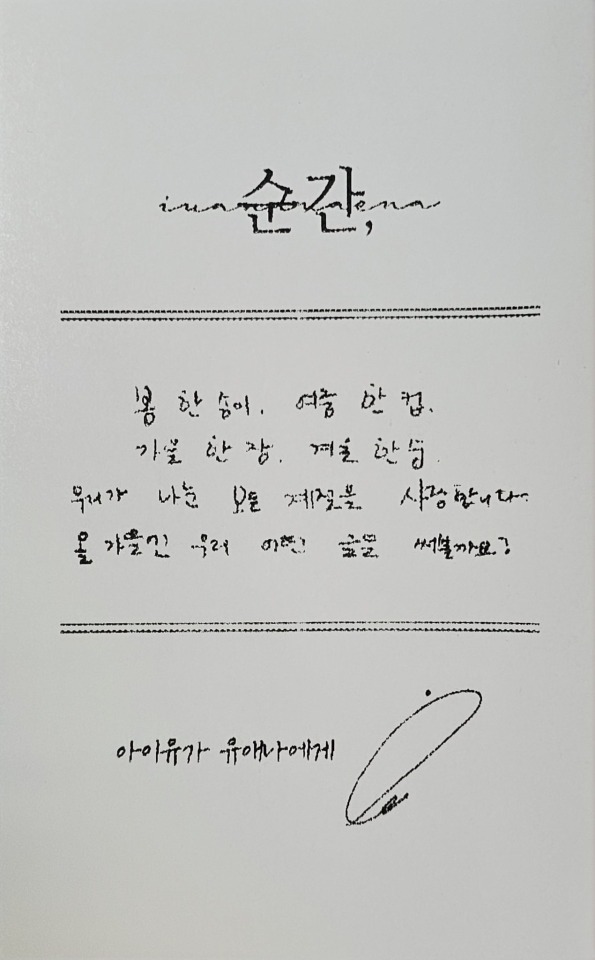 순간,
봄 한 송이. 여름 한 컵.
가을 한 장. 겨울 한 숨.
우리가 나눈 모든 계절을 사랑합니다.
올 가을엔 우리 어떤 글을 써볼까요?
아이유가 유애나에게